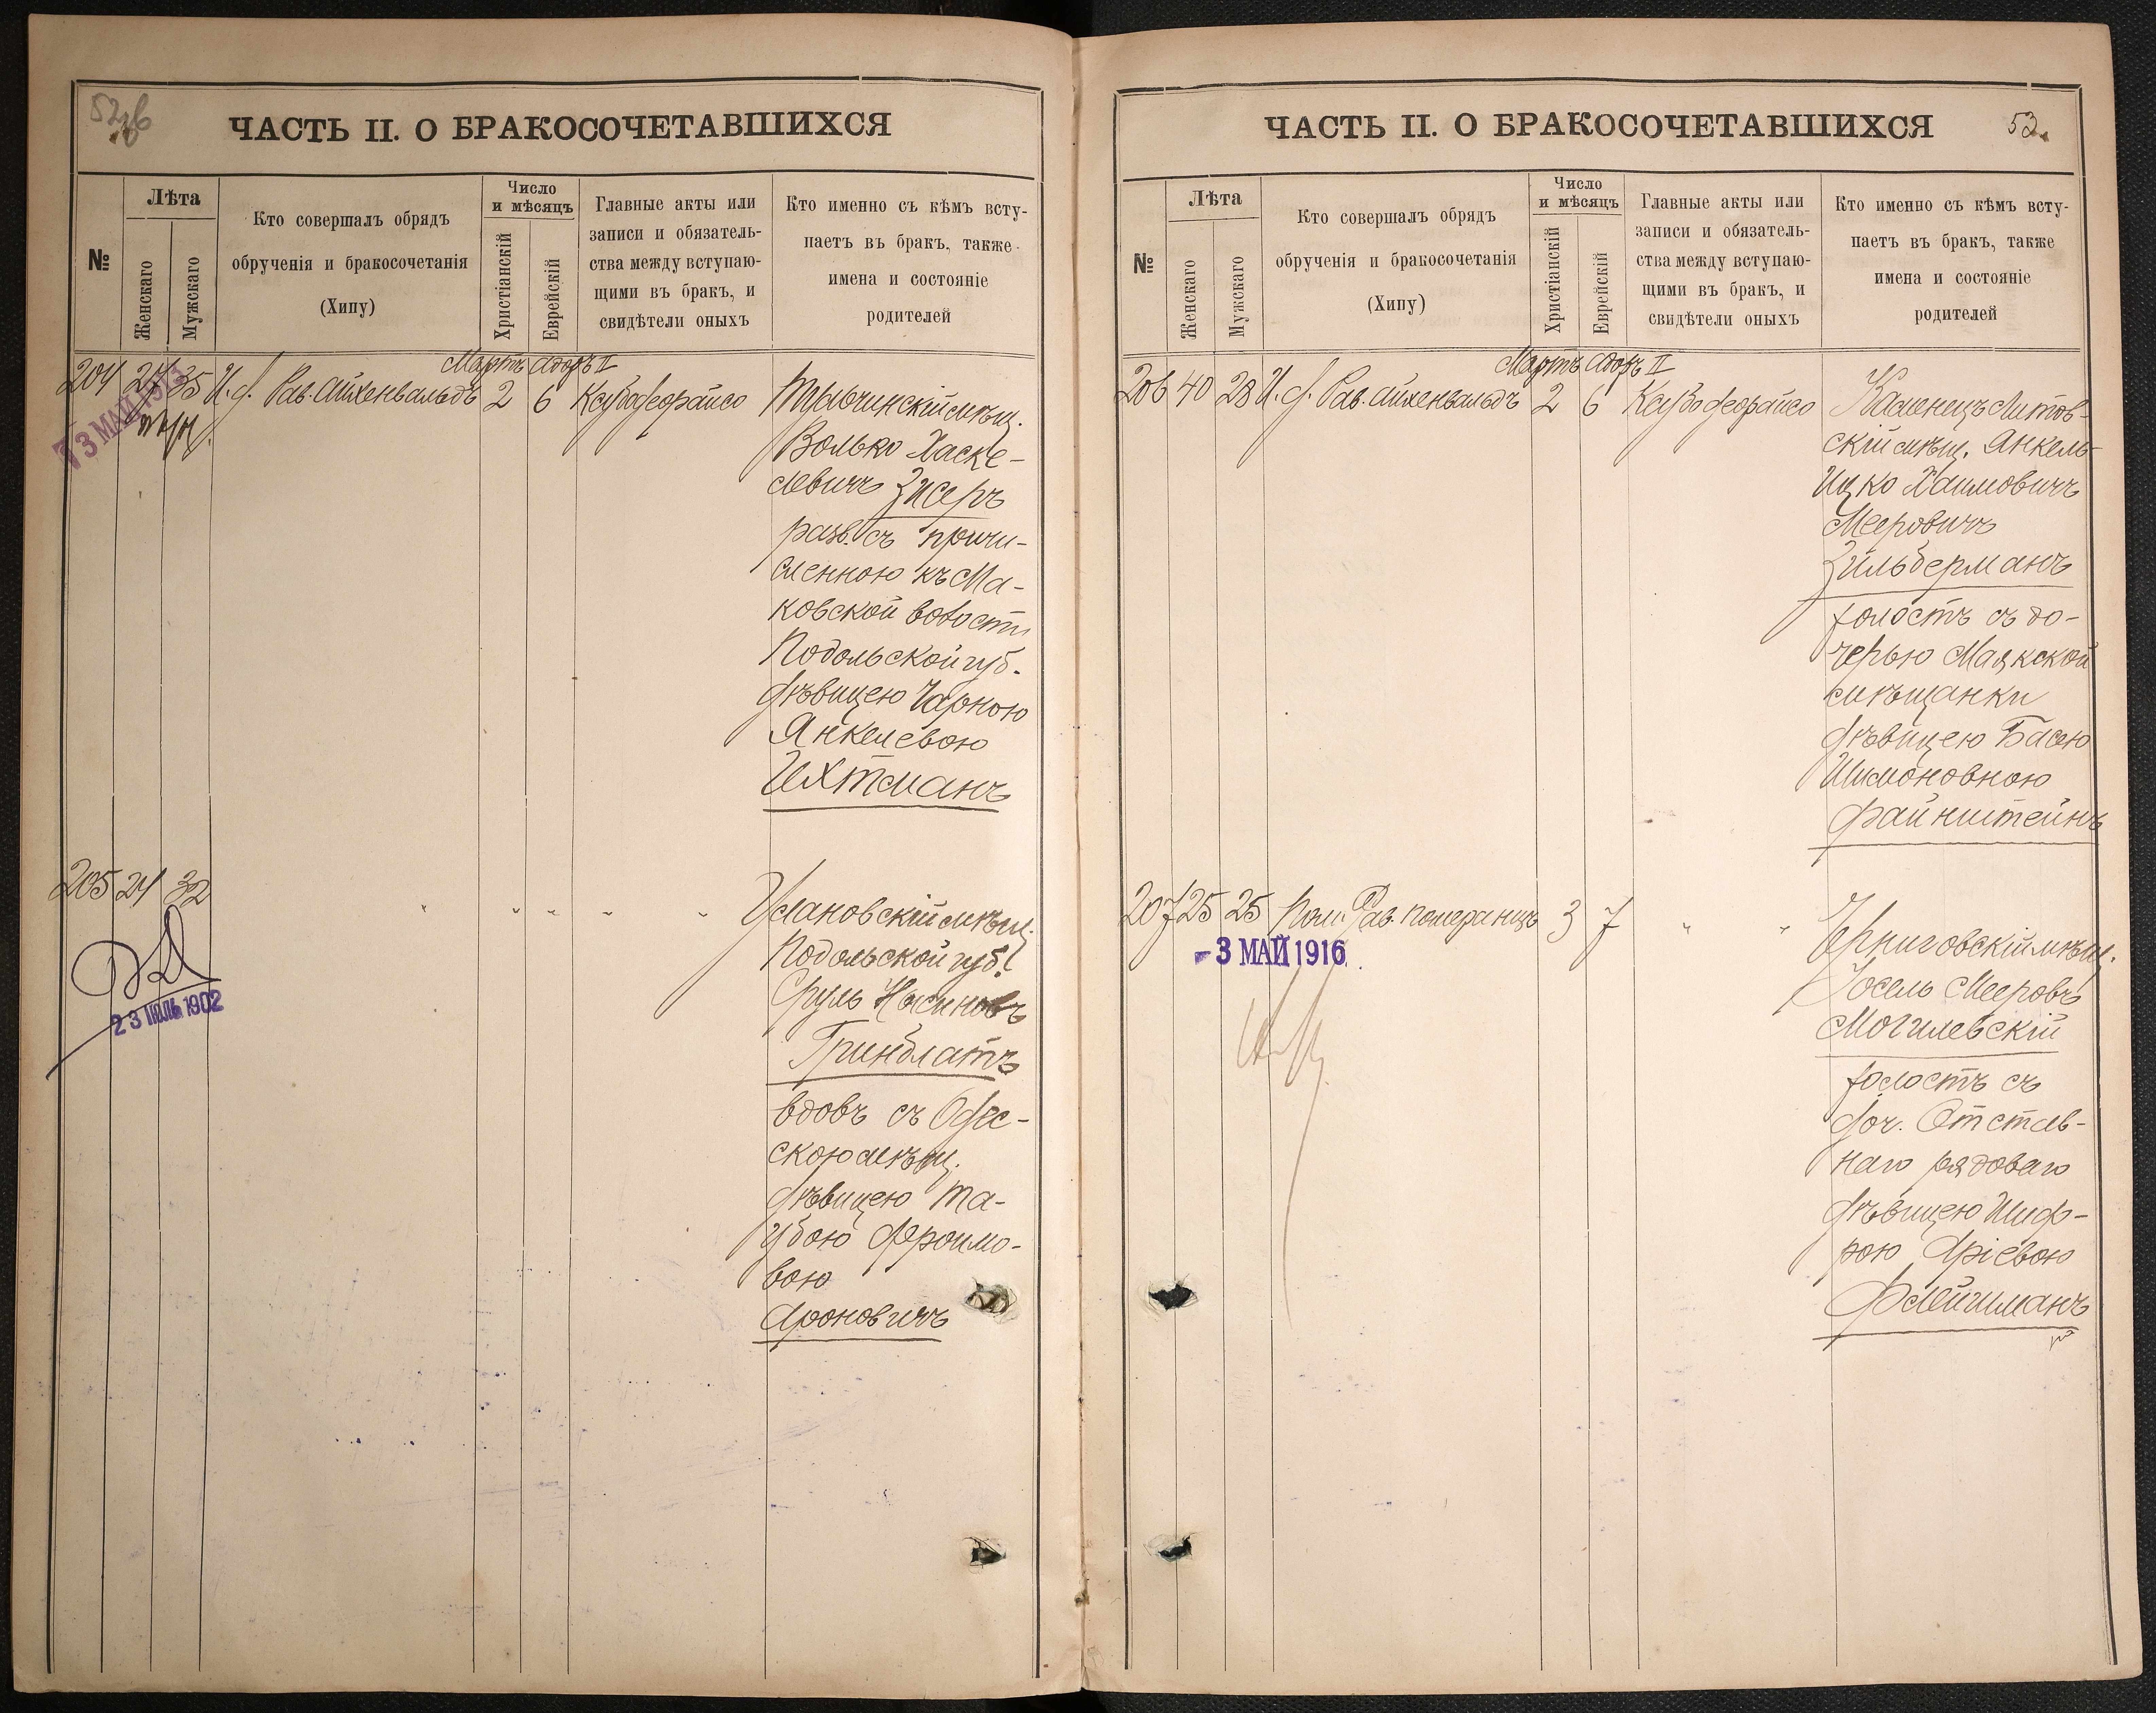 ЧАСТЬ II. О БРАКОСОЧЕТАВШИХСЯ
№
Лѣта
Женскаго
Мужскаго
Кто совершалъ обрядъ
обрученія и бракосочетанія
(Хипу)
Число
и мѣсяцъ
Христіанскій
Еврейскій
Главные акты или
записи и обязатель-
ства между вступаю-
щими въ бракъ, и
свидѣтели оныхъ
Кто именно съ кѣмъ всту-
паетъ въ бракъ, также
имена и состояніе
родителей
Мартъ Адаръ II
204 27 35 И. д. Рав. Айхенвальдъ 2 6
13 МАЙ 1913
Тульчинскій мѣщ.
Волько Хаске-
левичъ Зисеръ
разв. съ причи-
сленною къ Ма-
ковской волости
Подольской губ.
дѣвицею Чарною
Янкелевою
Ихтманъ
205 24 32 " " " " "
23 ІЮЛЬ 1902
Улановскій мѣщ.
Подольской губ.
Сруль Насиновъ
Гринблатъ
вдовъ съ Одес-
скою мѣщ.
дѣвицею Та-
убою Фроимо-
вою
Ароновичъ
ЧАСТЬ II. О БРАКОСОЧЕТАВШИХСЯ 53.
№
Лѣта
Женскаго
Мужскаго
Кто совершалъ обрядъ
обрученія и бракосочетанія
(Хипу)
Число
и мѣсяцъ
Христіанскій
Еврейскій
Главные акты или
записи и обязатель-
ства между вступаю-
щими въ бракъ, и
свидѣтели оныхъ
Кто именно съ кѣмъ всту-
паетъ въ бракъ, также
имена и состояніе
родителей
Мартъ Адаръ II
206 40 28 И. д. Рав. Айхенвальдъ 2 6
Каменецъ Литов-
скій мѣщ. Янкель-
Ицко Хаимовичъ
Мееровичъ
Зильберманъ
холостъ съ до-
черью Маякской
мѣщанки
дѣвицею Басею
Шимоновною
Файнштейнъ
207 25 25 Пом. Рав. Померанцъ 3 7 " "
-3 МАЙ 1916
Черниговскій мѣщ.
Іосель Мееровъ
Могилевскій
холостъ съ
доч. Отстав-
наго рядоваго
дѣвицею Шиф-
рою Аріевою
Флейшманъ